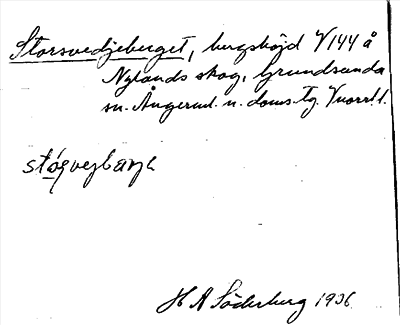 Storsvedjeberget, bergshöjd V 144 å
Nylands skog, Grundsunda
sn. Ångerml. n. doms. tg. Vnorrl. l.
H A Söderberg 1936